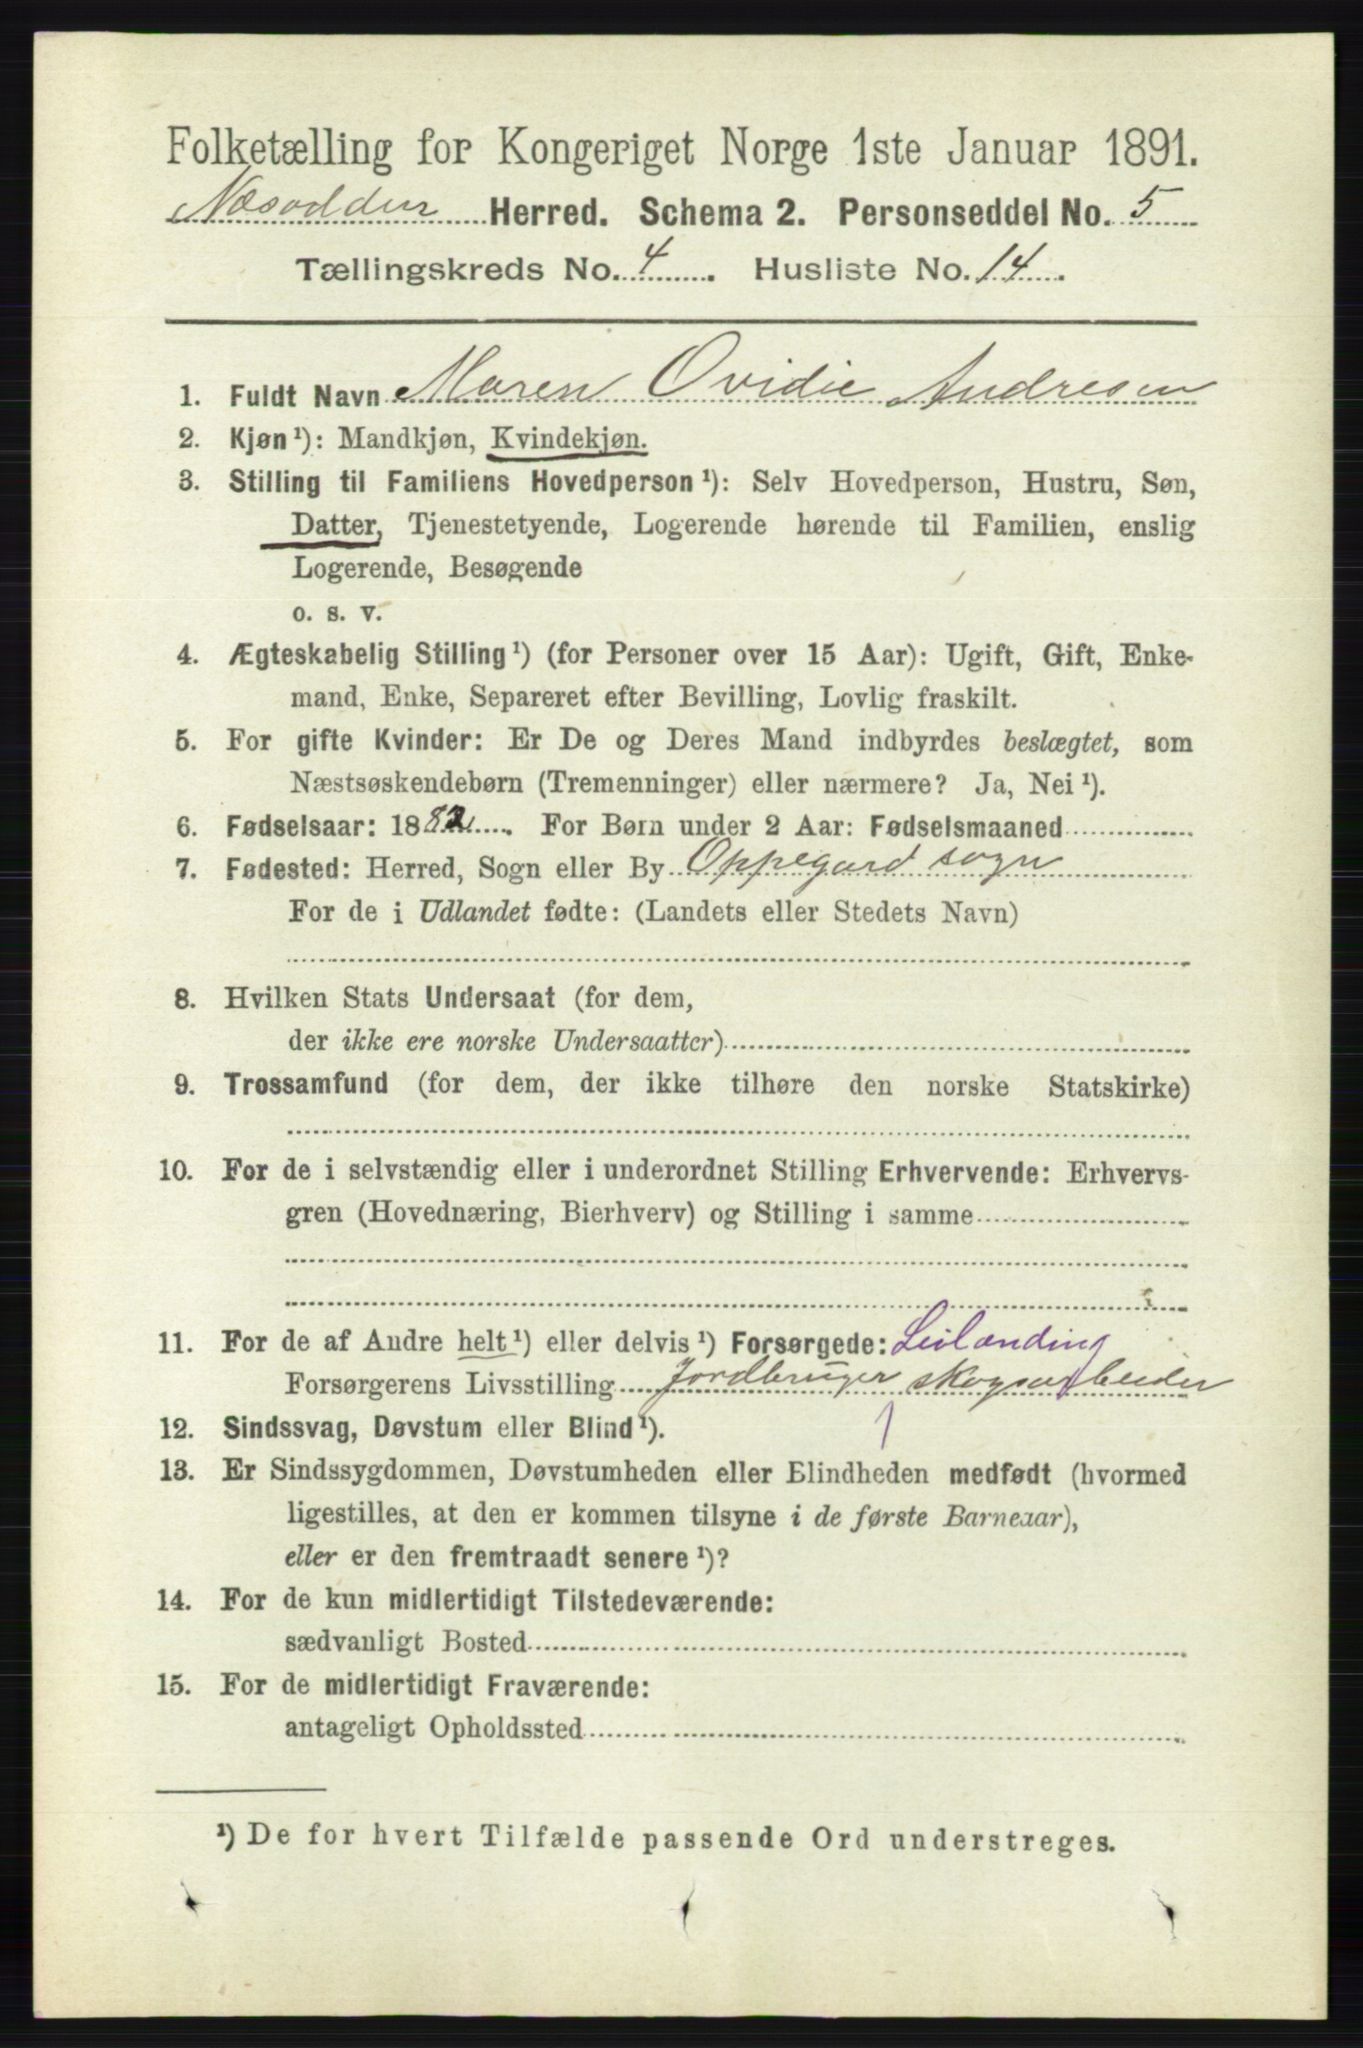 Folketælling for Kongeriget Norge 1ste Januar 1891.
Næsodden Herred. Schema 2. Personseddel No. 5
Tællingskreds No. 4. Husliste No. 14.
1. Fuldt Navn Maren Ovidie Andresen
2. Kjøn¹): Mandkjøn, Kvindekjøn.
3. Stilling til Familiens Hovedperson¹): Selv Hovedperson, Hustru, Søn,
Datter, Tjenestetyende, Logerende hørende til Familien, enslig
Logerende, Besøgende
o. s. v.
4. Ægteskabelig Stilling¹) (for Personer over 15 Aar): Ugift, Gift, Enke-
mand, Enke, Separeret efter Bevilling, Lovlig fraskilt.
5. For gifte Kvinder: Er De og Deres Mand indbyrdes beslægtet, som
Næstsøskendebørn (Tremenninger) eller nærmere? Ja, Nei¹).
6. Fødselsaar: 1882. For Børn under 2 Aar: Fødselsmaaned
7. Fødested: Herred, Sogn eller By Oppegard sogn
For de i Udlandet fødte: (Landets eller Stedets Navn)
8. Hvilken Stats Undersaat (for dem,
der ikke ere norske Undersaatter)
9. Trossamfund (for dem, der ikke tilhøre den norske Statskirke)
10. For de i selvstændig eller i underordnet Stilling Erhvervende: Erhvervs-
gren (Hovednæring, Bierhverv) og Stilling i samme
11. For de af Andre helt¹) eller delvis¹) Forsørgede: Leilænding
Forsørgerens Livsstilling Jordbruger skogsarbeider
12. Sindssvag, Døvstum eller Blind¹).
13. Er Sindssygdommen, Døvstumheden eller Blindheden medfødt (hvormed
ligestilles, at den er kommen tilsyne i de første Barneaar),
eller er den fremtraadt senere¹)?
14. For de kun midlertidigt Tilstedeværende:
sædvanligt Bosted
15. For de midlertidigt Fraværende:
antageligt Opholdssted
¹) De for hvert Tilfælde passende Ord understreges.